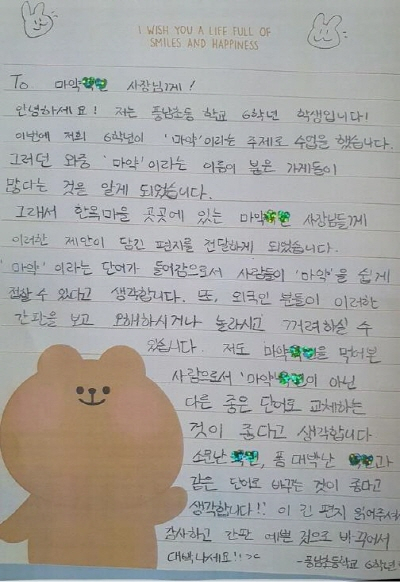 I WISH YOU A LIFE FULL OF
SMILES AND HAPPINESS
To 마약 사장님께!
안녕하세요! 저는 풍남초등 학교 6학년 학생입니다!
이번에 저희 6학년이 '마약'이라는 주제로 수업을 했습니다.
그러던 와중 '마약'이라는 이름이 붙은 가게들이
많다는 것을 알게 되었습니다.
그래서 한옥마을 곳곳에 있는 마약 사장님들께
이러한 제안이 담긴 편지를 전달하게 되었습니다.
'마약'이라는 단어가 들어감으로서 사람들이 '마약'을 쉽게
접할 수 있다고 생각합니다. 또, 외국인 분들이 이러한
간판을 보고 오해하시거나 놀라시고 꺼려하실 수
있습니다. 저도 마약을 먹어본
사람으로서 '마약'이 아닌
다른 좋은 단어로 교체하는
것이 좋다고 생각합니다
소문난, 품 대박난 과
같은 단어로 바꾸는 것이 좋다고
생각합니다!! 이 긴 편지 읽어주셔서
감사하고 간판 예쁜 것으로 바꾸어서
대박나세요!! ><
-풍남초등학교 6학년